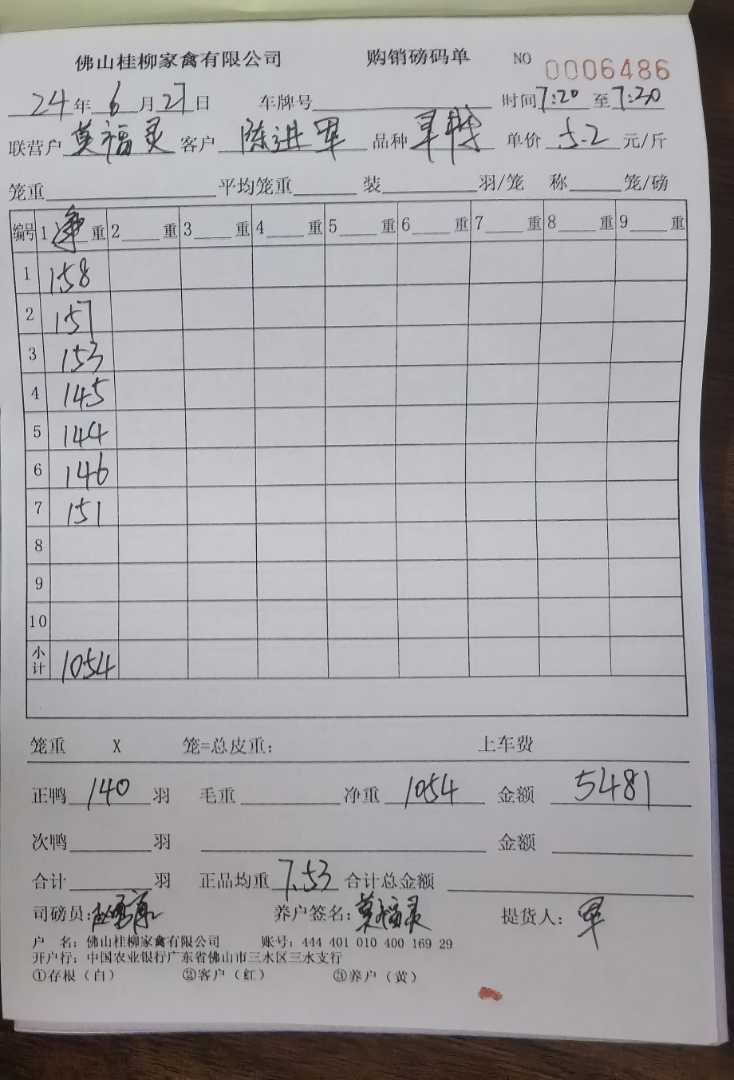 佛山桂柳家禽有限公司 购销磅码单 NO 0006486
24年6月27日 车牌号 时间7:20至7:30
联营户 莫福灵 客户 陈进军 品种 单价 5.2 元/斤
笼重 平均笼重 装 羽/笼 称 笼/磅
编号 1 净重 2 重 3 重 4 重 5 重 6 重 7 重 8 重 9 重
1 158
2 157
3 153
4 145
5 144
6 146
7 151
8
9
10
小计 1054
笼重 X 笼=总皮重: 上车费
正鸭 140 羽 毛重 净重 1054 金额 5481
次鸭 羽 金额
合计 羽 正品均重 7.53 合计总金额
司磅员: 养户签名: 莫福灵 提货人: 军
户 名: 佛山桂柳家禽有限公司 账号: 444 401 010 400 169 29
开户行: 中国农业银行广东省佛山市三水区三水支行
①存根(白) ②客户(红) ③养户(黄)